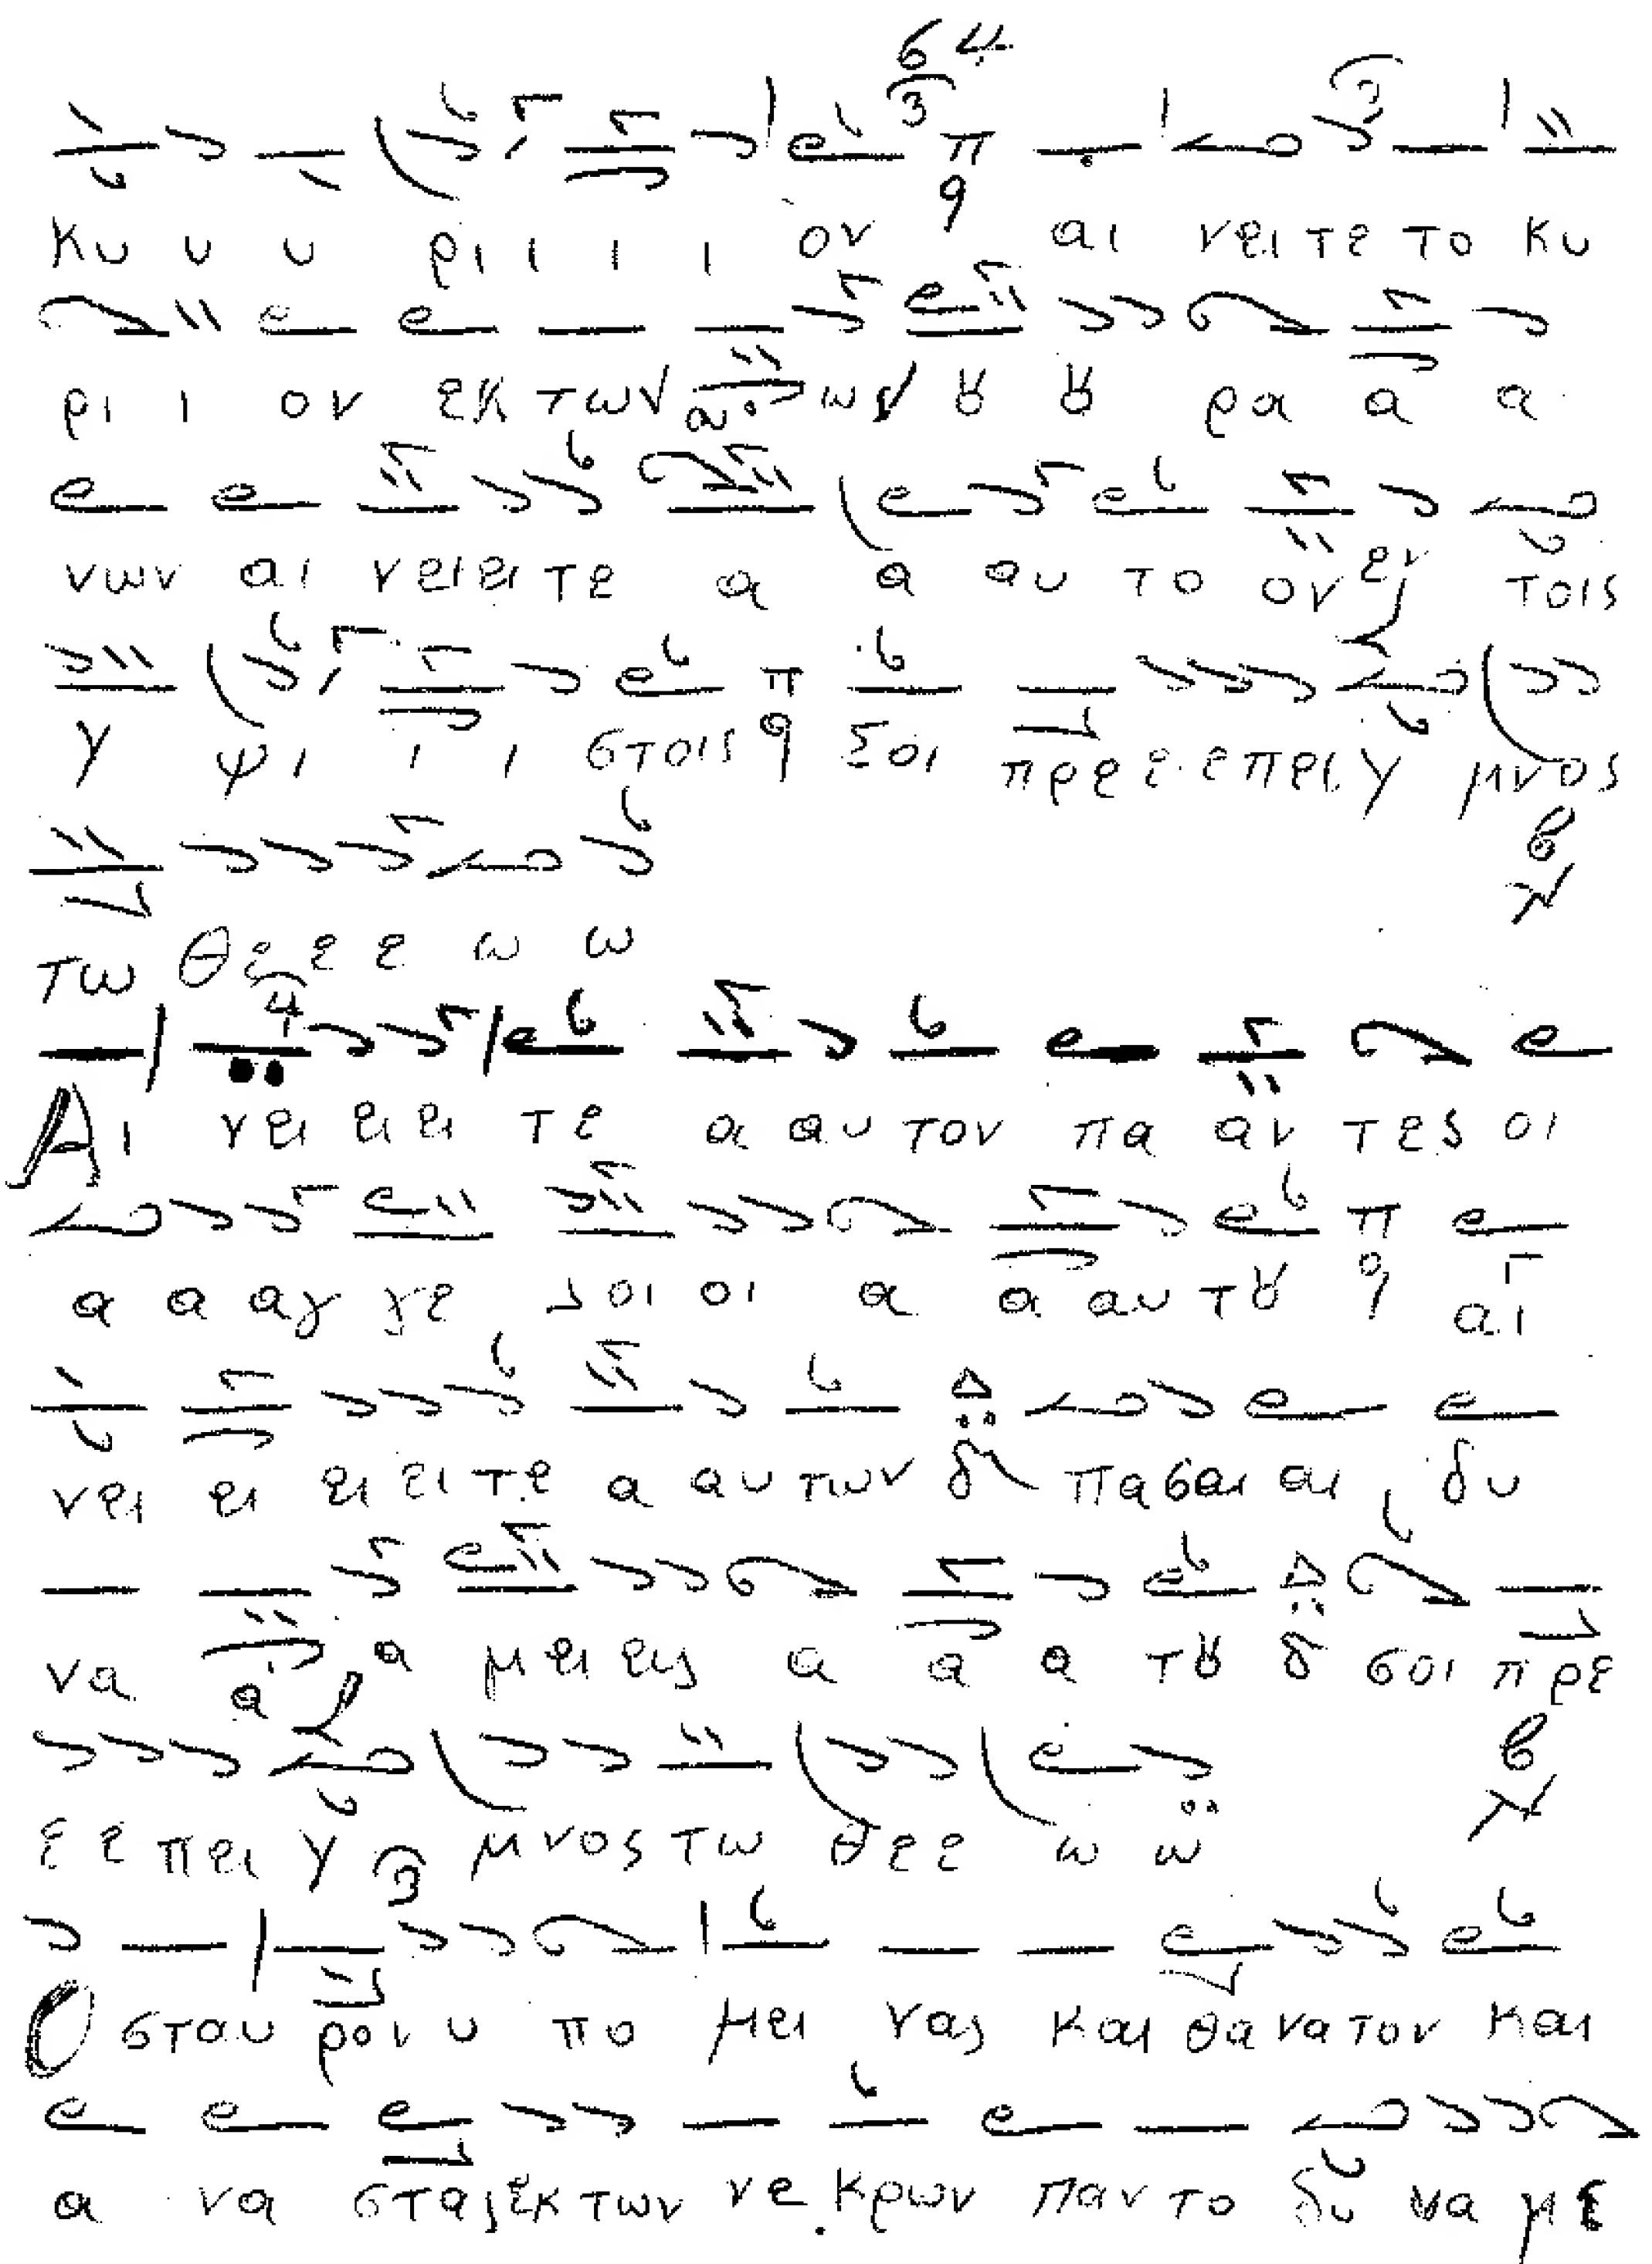 64
Κυ υ υ ρι ι ι ι ον αι νει τε το κυ
ρι ι ον εκ των ω ων ȣ ȣ ρα α α
νων αι νει ει τε α α αυ το ον εν τοις
Υ ψι ι ι στοις Σοι πρε ε ε πει Υ μνος
β
τω Θε ε ε ω ω
Αι νει ει ει τε α αυ τον πα αν τες οι
α α αγ γε λοι οι α α αυ τȣ αι
νει ει ει ει τε α αυ των πα σαι αι δυ
να α α μει εις α α α τȣ σοι πρε
β
ε ε πει Υ μνος τω Θε ε ω ω
Ο σταυ ρον υ πο μει νας και θα να τον και
α να στας εκ των νε κρων παν το δυ να με